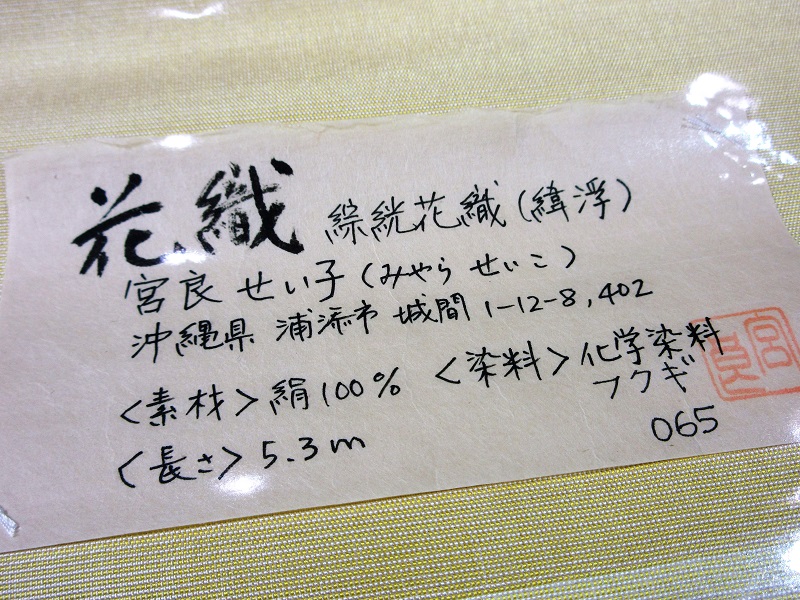 花織 綜絖花織(緯浮)
宮良 せい子(みやら せいこ)
沖縄県 浦添市 城間 1-12-8,402
<素材>絹100% <染料>化学染料
フクギ
<長さ>5.3m
065
宮良